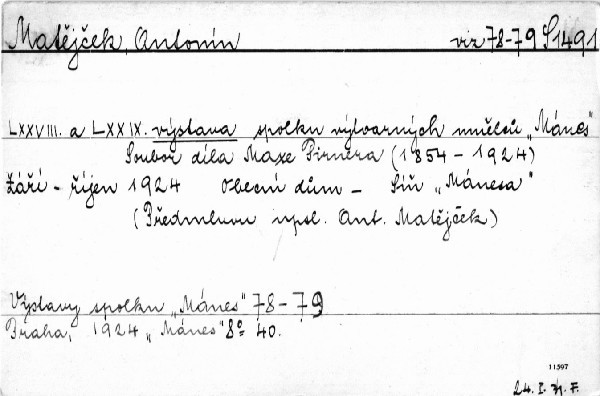 Matějček, Antonín viz 78-79 S1491
LXXVIII. a LXXIX. výstava spolku výtvarných umělců „Mánes"
Soubor díla Maxe Pirnera (1854 - 1924)
Září - říjen 1924 Obecní dům - Síň „Mánesa"
(Předmluvu napsl. Ant. Matějček)
Výstavy spolku „Mánes" 78-79
Praha, 1924 „Mánes" 8° 40.
11597
24. I.